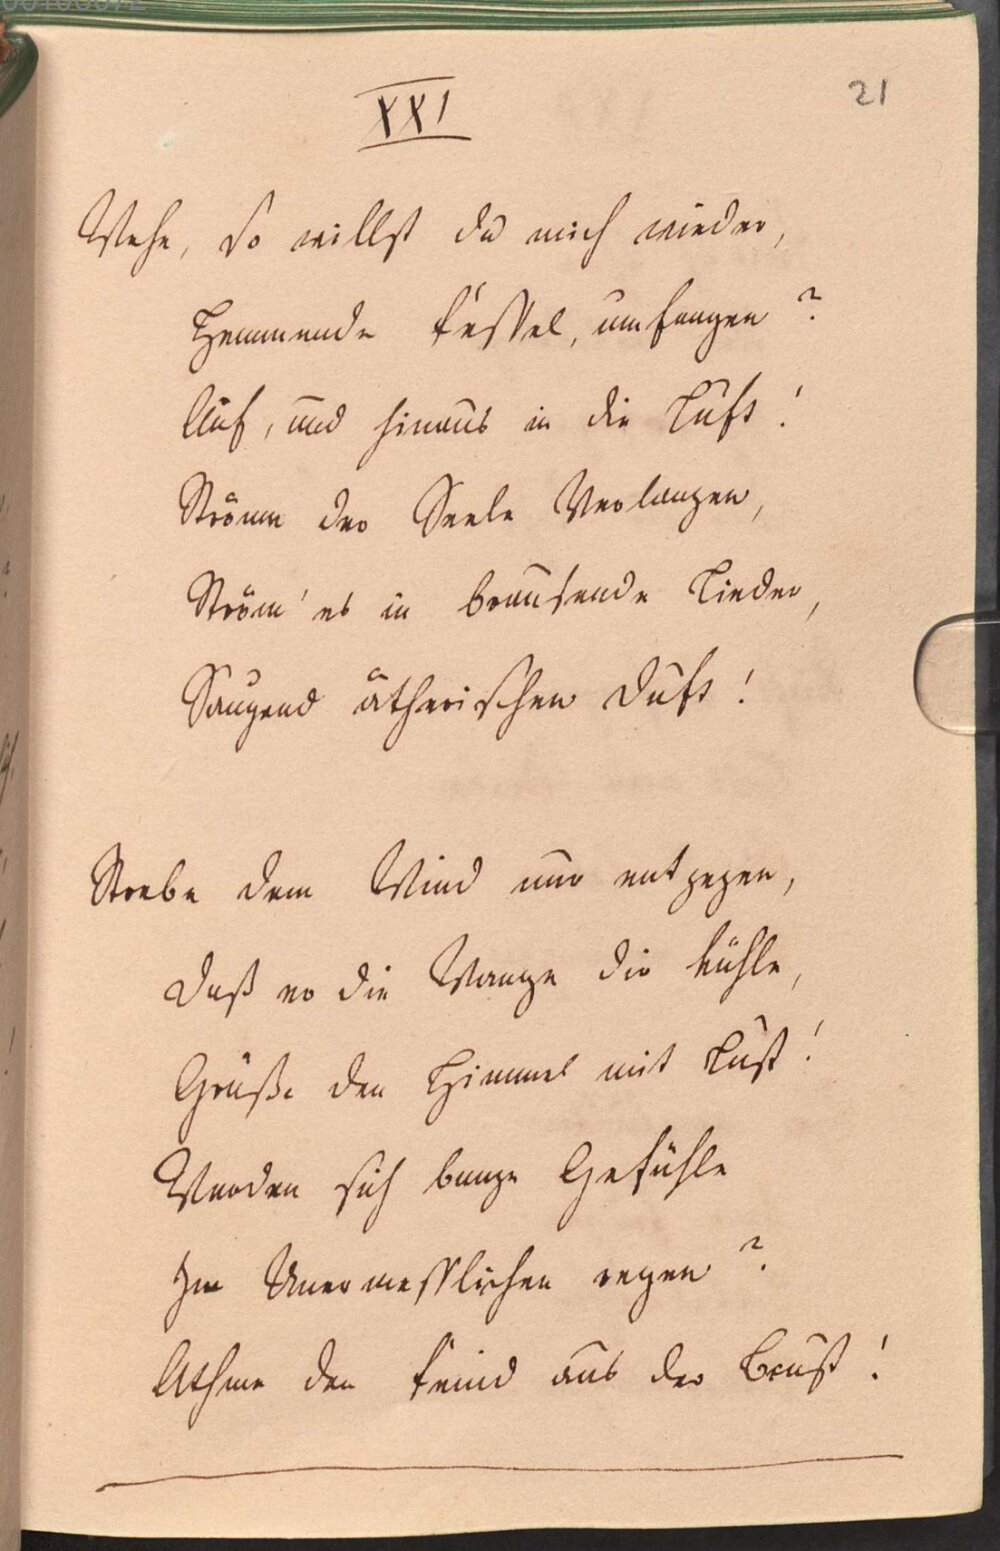 XXI
21
Wehe, so willst du mich wieder,
Hemmende Fessel, umfangen?
Auf, und hinaus in die Luft!
Ströme der Seele Verlangen,
Ström' es in brausende Lieder,
Saugend ätherischen Duft!
Strebe dem Wind nur entgegen,
Daß er die Wange dir kühle,
Grüße den Himmel mit Lust!
Werden sich bange Gefühle
Im Unermesslichen regen?
Athme den Feind aus der Brust!